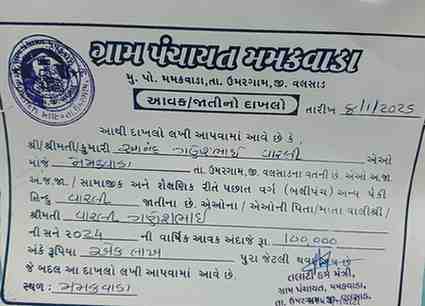 ગ્રામ પંચાયત મમકવાડા
મુ. પો. મમકવાડા, તા. ઉમરગામ, જી. વલસાડ
આવક/જાતીનો દાખલો
તારીખ ૬/૧/2025
આથી દાખલો લખી આપવામાં આવે છે કે,
શ્રી/શ્રીમતી/કુમારી ગણેશભાઈ વારલી એઓ
મોજે મમકવાડા તા. ઉમરગામ, જી. વલસાડના વતની છે. એઓ અ.જા.
અ.જ.જા. / સામાજીક અને શૈક્ષણિક રીતે પછાત વર્ગ (બક્ષીપંચ) અન્ય પૈકી
હિન્દુ વારલી જાતીના છે. એઓના / એઓની પિતા/માતા વાલીશ્રી/
શ્રીમતી વારલી ગણેશભાઈ
ની સને ૨૦૨૪ ની વાર્ષિક આવક અંદાજે રૂા. 100,000
અંકે રૂપિયા એક લાખ પુરા જેટલી થવા છે
જે બદલ આ દાખલો લખી આપવામાં આવે છે.
સ્થળ : મમકવાડા
તલાટી કમ મંત્રી,
ગ્રામ પંચાયત, મમકવાડા,
તા. ઉમરગામ